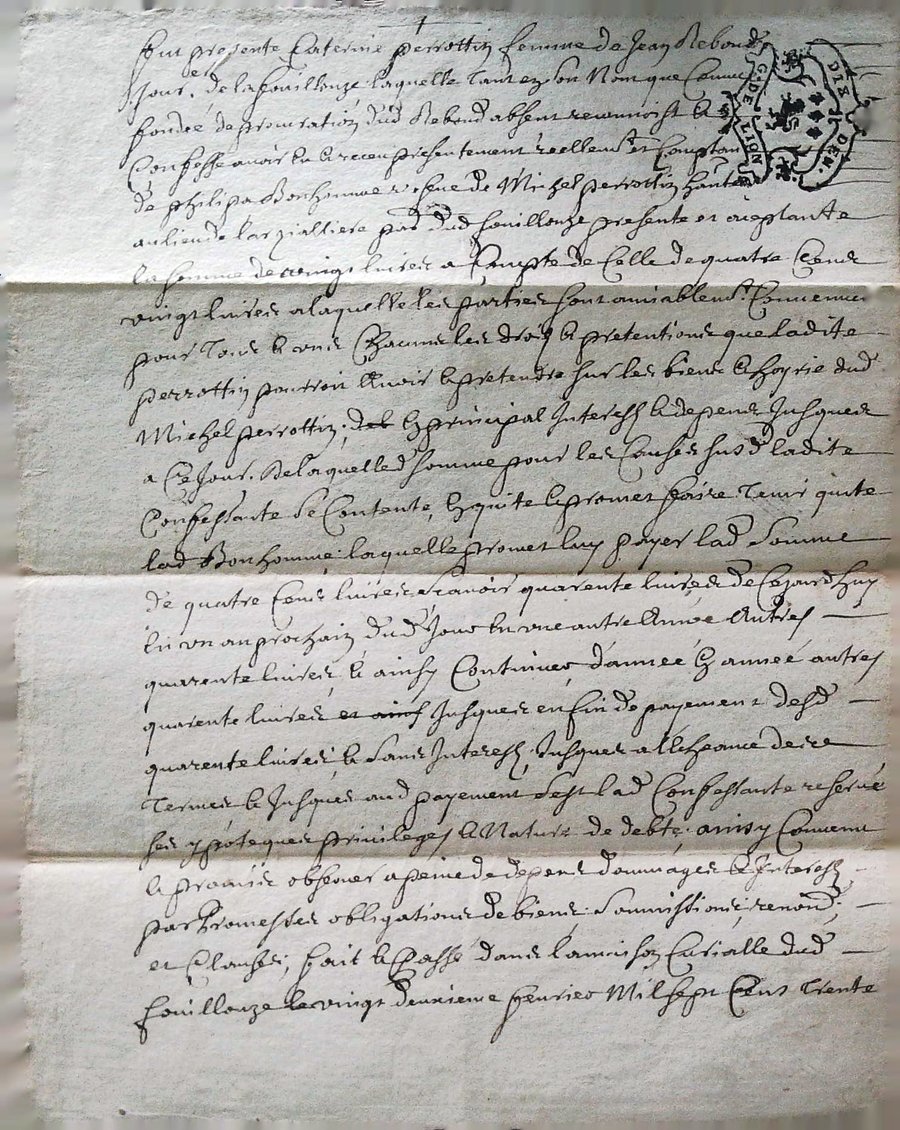 fut presente Caterine perrottin femme de Jean Reboud
Jour. de la fouillouze laquelle tant en son Nom que Comme
fondée de procuration dud Reboud absent reconnoist &
Confesse avoir eu & receu presentement reellemt et Comptant
de philipa Bonhomme vefve de Michel perrottin hante
au lieu de par dud fouillouze presente et aceptante
la somme de vingt livres a Compte de Celle de quatre Cens
vingt livres a laquelle les parties sont amiablemt. Convenues
pour Tous & uns Chacuns les droits & pretentions que ladite
perrottin pourroit Avoir & pretendre sur les biens & hoyrie dud
Michel perrottin, en principal Interest & depens Jusques
a Ce Jour. De laquelle d somme pour les Causes susd ladite
Confessante se Contente, en quite & promet faire Tenir quite
lad Bonhomme laquelle promet luy payer lad Somme
de quatre Cens livres scavoir quarente livres de Cejourdhuy
en un an prochain dud Jour en une autre Année Autres
quarente livres & ainsy Continuer d'année en année autres
quarente livres et ains Jusques en fin de payement desd
quarente livres & sans Interest, Jusques a lescheance desd
Termes & Jusques aud payement sest lad Confessante reservé
ses ypoteques privileges & Nature de debte. ainsy Convenu
& promis observer a peine de depens dommages & Interest
par Promesses obligations de biens Soumissions, renond,
et Clauses, fait & Passé dans la maison Curialle dud
fouillouze le vingt deuxieme fevrier Mil sept Cent Trente
G. DE LION
DIX DEN.